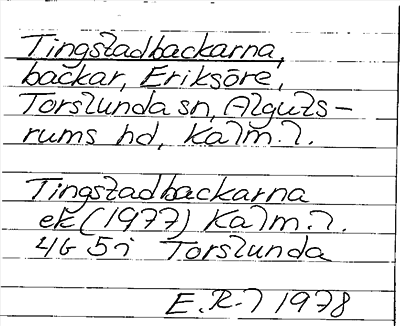 Tingstadbackarna,
backar, Eriksöre,
Torslunda sn, Alguts-
rums hd, Kalm. l.
Tingstadbackarna
ek (1977) Kalm. l.
4G 5i Torslunda
E.R-l 1978